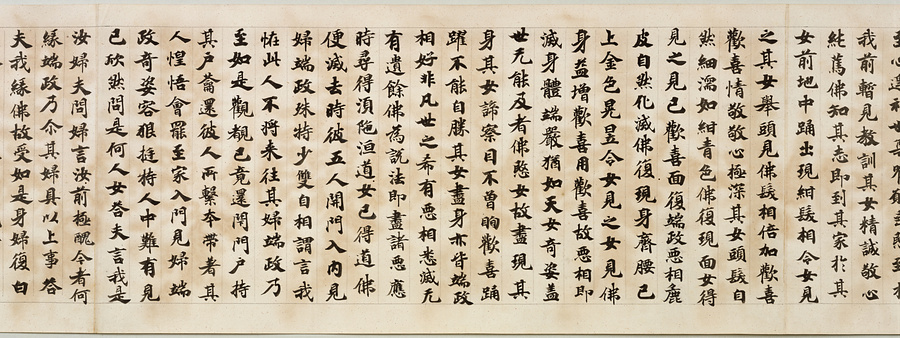 我前暫見教訓其女精誠敬心
純篤佛知其志即到其家於其
女前地中踊出現紺髮相令女見
之其女舉頭見佛髮相倍加歡喜
歡喜情敬敬心極深其女頭髮自
然細濡如紺青色佛復現面女得
見之見已歡喜面復端政惡相麁
皮自然化滅佛復現身齊腰已
上金色晃昱令女見之女見佛
身益增歡喜用歡喜故惡相即
滅身體端嚴猶如天女奇姿蓋
世无能及者佛愍女故盡現其
身其女諦察目不曾眴歡喜踊
躍不能自勝其女盡身亦皆端政
相好非凡世之希有惡相悉滅无
有遺餘佛為說法即盡諸惡應
時尋得湏陁洹道女已得道佛
便滅去時彼五人開門入內見
婦端政殊特少雙自相謂言我
恠此人不將來往其婦端政乃
至如是觀覩已竟還閇門戶持
其戶蘥還彼人所繫本帶著其
人惶悟會罷至家入門見婦端
政奇姿容狠挺特人中難有見
已欣然問是何人女荅夫言我是
汝婦夫問婦言汝前極醜今者何
緣端政乃尒其婦具以上事荅
夫我緣佛故受如是身婦復白